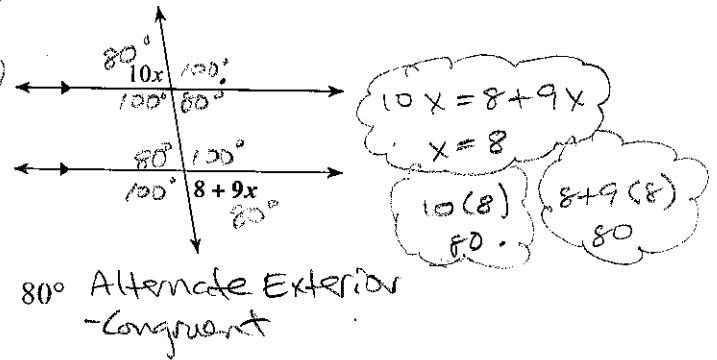 )
80°
10x 100°
100° 80°
80° 100°
100° 8 + 9x
80°
10x = 8+9x
x = 8
10(8)
80.
8+9(8)
80
80° Alternate Exterior
-Congruent